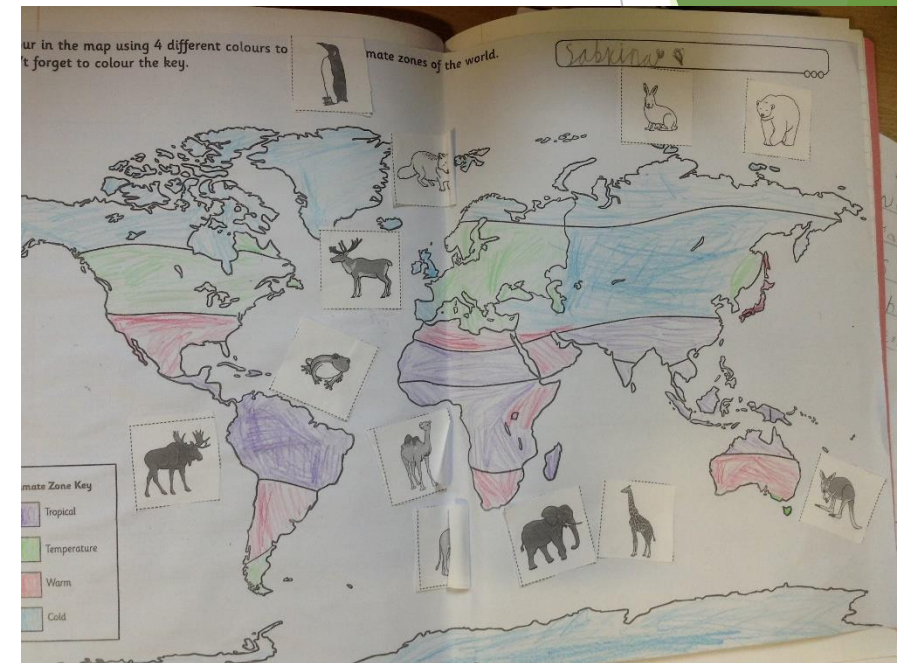 ur in the map using 4 different colours to mate zones of the world.
't forget to colour the key.
Sabrina
mate Zone Key
Tropical
Temperature
Warm
Cold